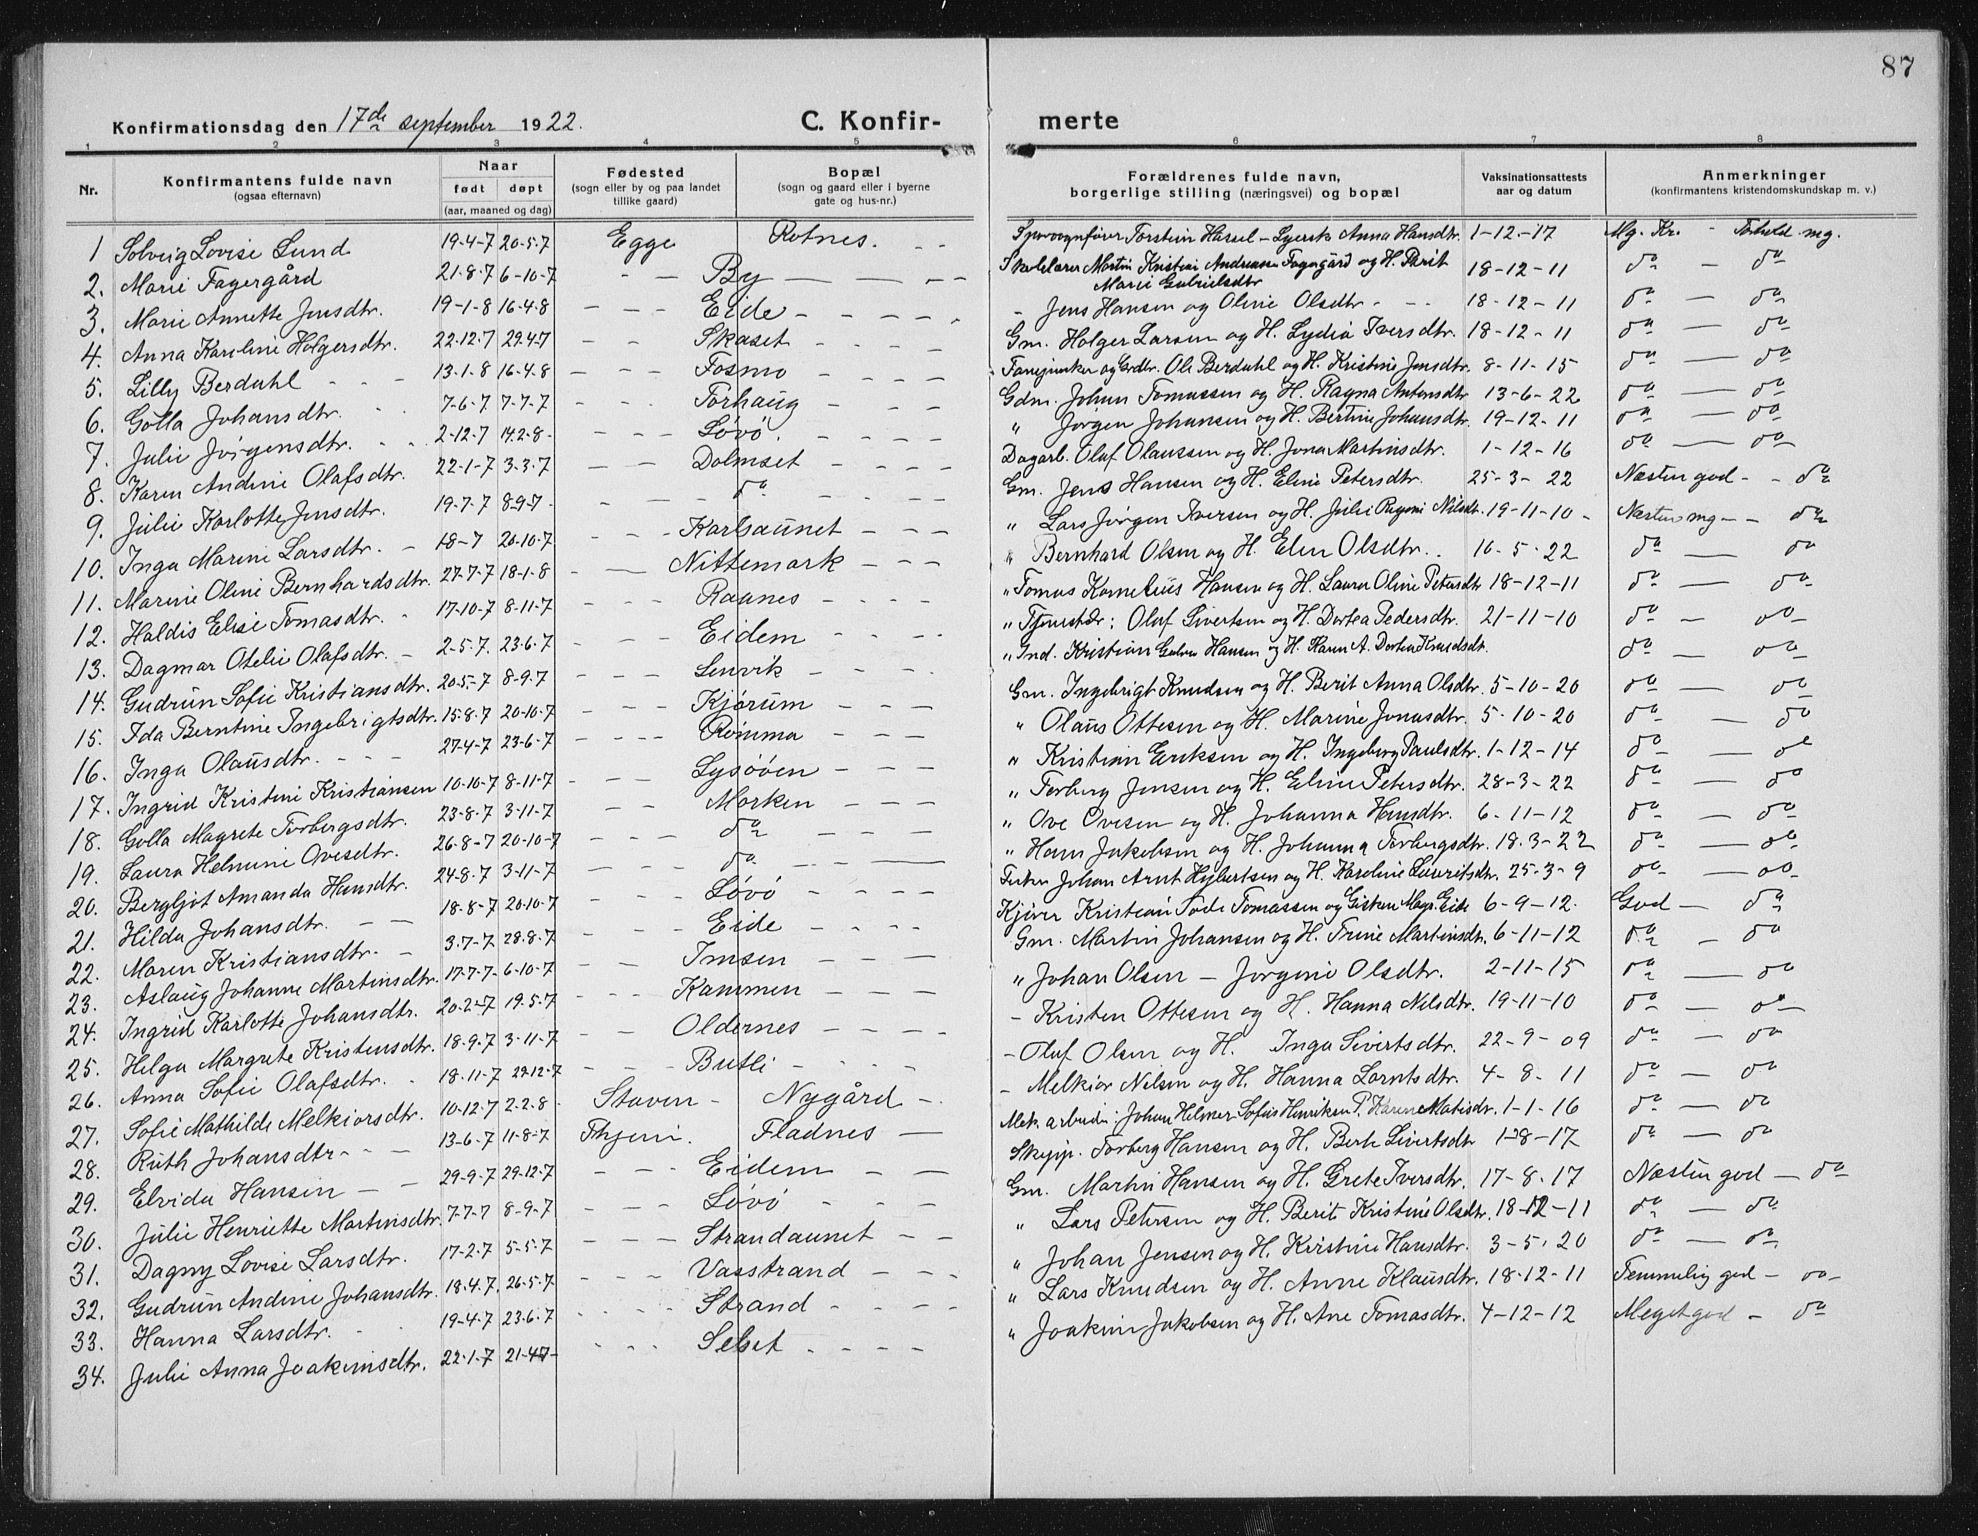 87
Konfirmationsdag den 17de september 1922. C. Konfir- merte
1 2 3 4 5 6 7 8
Nr. Konfirmantens fulde navn (ogsaa efternavn) Naar født døpt (aar, maaned og dag) Fødested (sogn eller by og paa landet tillike gaard) Bopæl (sogn og gaard eller i byerne gate og hus-nr.) Forældrenes fulde navn, borgerlige stilling (næringsvei) og bopæl Vaksinationsattests aar og datum Anmerkninger (konfirmantens kristendomskundskap m. v.)
1 Solveig Lovise Lund 19-4-7 20-5-7 Egge Rotnes. Torstein Hassel - Anna Hansdtr. 1-12-17 Mg. Kr. - Forhold mg.
2. Marie Fagergård 21-8-7 6-10-7 - - By Skolelærer Martin Kristian Andreassen Fagergård og H. Berit Marie Gabrielsdtr 18-12-11 do - do
3. Marie Annette Jensdtr. 19-1-8 16-4-8 - - - Eide - Jens Hansen og Oline Olsdtr. 18-12-11 do - do
4. Anna Karoline Holgersdtr. 22-12-7 29-4-7 - - Skaset Gm. Holger Larsen og H. Lydia Iversdtr. 18-12-11 do - do
5. Lilly Berdahl 13-1-8 16-4-8 - - - Fosmo Fanejunker og Ole Berdahl og H. Kristine Jensdtr. 8-11-15 do - do
6. Golla Johansdtr. 7-6-7 7-7-7 - - - Torhaug Gdm. Johan Tomassen og H. Ragna Antonsdtr 13-6-22 do - do
7. Julie Jørgensdtr. 2-12-7 14-2-8 - - - Løvö. " Jørgen Johansen og H. Bertine Johansdtr. 19-12-11 do - do
8. Karen Andine Olafsdtr. 22-1-7 3-3-7 - - Dolmset Dagarb. Olaf Olaussen og H. Jona Martinsdtr. 1-12-16 do - do
9. Julie Karlotte Jensdtr. 19-7-7 8-9-7 - - do Gm. Jens Hansen og H. Eline Petersdtr. 25-3-22 Næsten god - - do
10. Inga Marine Larsdtr. 18-7 20-10-7 - - - Karlsaunet " Lars Jørgen Iversen og H. Julie Nilsdt. 19-11-10 - Næsten mg - - do
11. Marine Oline Bernhardsdtr. 27-7-7 18-1-8 - Nittemark " Bernhard Olsen og H. Elen Olsdtr. 16-5-22 do - do
12. Haldis Elise Tomasdtr. 17-10-7 8-11-7 - - - Raanes " Tomas Kornelius Hansen og H. Laura Oline Petersdtr 18-12-11 do - do
13. Dagmar Otelie Olafsdtr. - 2-5-7 23-6-7 - - - Eidem " Olaf Sivertsen og H. Dortea Pedersdtr. 21-11-10 do - do
14. Gudrun Sofie Kristiansdtr. 20-5-7 8-9-7 - - - Lenvik " Ind. Kristian Hansen og H. Karen A. Dortea Knudsdt. do - do
15. Ida Berntine Ingebrigtsdtr. 15-8-7 20-10-7 - - - Kjørum Gm. Ingebrigt Knudsen og H. Berit Anna Olsdtr. 5-10-20 do - do
16. Inga Olausdtr. 27-4-7 23-6-7 - - - Rømma " Olaus Ottesen og H. Marine Jonasdtr. 5-10-20 do - do
17. Ingrid Kristine Kristiansen 10-10-7 8-11-7 - - - Lysöven " Kristian Eriksen og H. Ingeborg Paulsdtr. 1-12-14 do - do
18. Golla Magrete Torbergsdtr. 23-8-7 3-11-7 - - Morken " Torberg Jensen og H. Eline Petersdtr. 28-3-22 do - do
19. Laura Helmine Ovesdtr. 26-8-7 20-10-7 - - - do " Ove Ovesen og H. Johanna Hansdtr. 6-11-12 do - do
20. Bergljot Amanda Hansdtr. 24-8-7 3-11-7 - - do " Hans Jakobsen og H. Johanna Torbergsdtr. 18-3-22 do - do
21. Hilda Johansdtr. - - 18-8-7 20-10-7 - - - Løvö Johan Arnt Hybertsen og H. Karoline Lauritsdtr. 25-3-9 do - do
22. Maren Kristiansdtr. - 3-7-7 28-8-7 - - - Eide Kristian Tode Tomassen og Gisken Magr. Eide 6-9-12. God - do
23. Aslaug Johanne Martinsdtr. 17-7-7 6-10-7 - - Imsen Gm. Martin Johansen og H. Trine Martinsdtr. 6-11-12 do - do
24. Ingrid Karlotte Johansdtr. 20-2-7 19-5-7 - - - Kammen " Johan Olsen - Jørgine Olsdtr. 2-11-15 do - do
25. Helga Margrete Kristensdtr. 18-9-7 3-11-7 - - Oldernes - Kristen Ottesen og H. Hanna Nilsdtr. 19-11-10 do - do
26. Anna Sofie Olafsdtr. 18-11-7 29-12-7 - - - Butli - Olaf Olsen og H. Inga Sivertsdtr. 22-9-09 do - do
27. Sofie Mathilde Melkiorsdtr. 10-12-7 2-2-8 Stoven - Nygård - Melkior Nilsen og H. Hanna Lorntsdtr. 4-8-11 do - do
28. Ruth Johansdtr - - 13-6-7 11-8-7 Thjem. Fladnes Mek. arbeider: Johan Helmer Sofus Henriksen Karen Matisdtr. 1-1-16 do - do
29. Elvida Hansen - - 29-9-7 29-12-7 - - - Eidem Skipp. Torberg Hansen og H. Berte Sivertsdtr 1-8-17 do - do
30. Julie Henriette Martinsdtr. 7-7-7 8-9-7 - - - Løvö Gm. Martin Hansen og H. Grete Iversdtr. 17-8-17 Næsten god - do
31. Dagny Lovise Larsdtr. 17-2-7 5-5-7 - - - Strandaunet " Lars Petersen og H. Berit Kristine Olsdtr. 18-12-11 do - do
32. Gudrun Andine Johansdtr. 18-4-7 26-5-7 - - - Vasstrand " Johan Jensen og H. Kristine Hansdtr. 3-5-20 do - do
33. Hanna Larsdtr. 19-4-7 23-6-7 - - - Strand " Lars Knudsen og H. Anne Klausdtr. 18-12-11 Temmelig god - do
34. Julie Anna Joakimsdtr. 22-1-7 21-4-7 - - - Selset " Joakim Jakobsen og H. Ane Tomasdtr. 4-12-12 Meget god - do